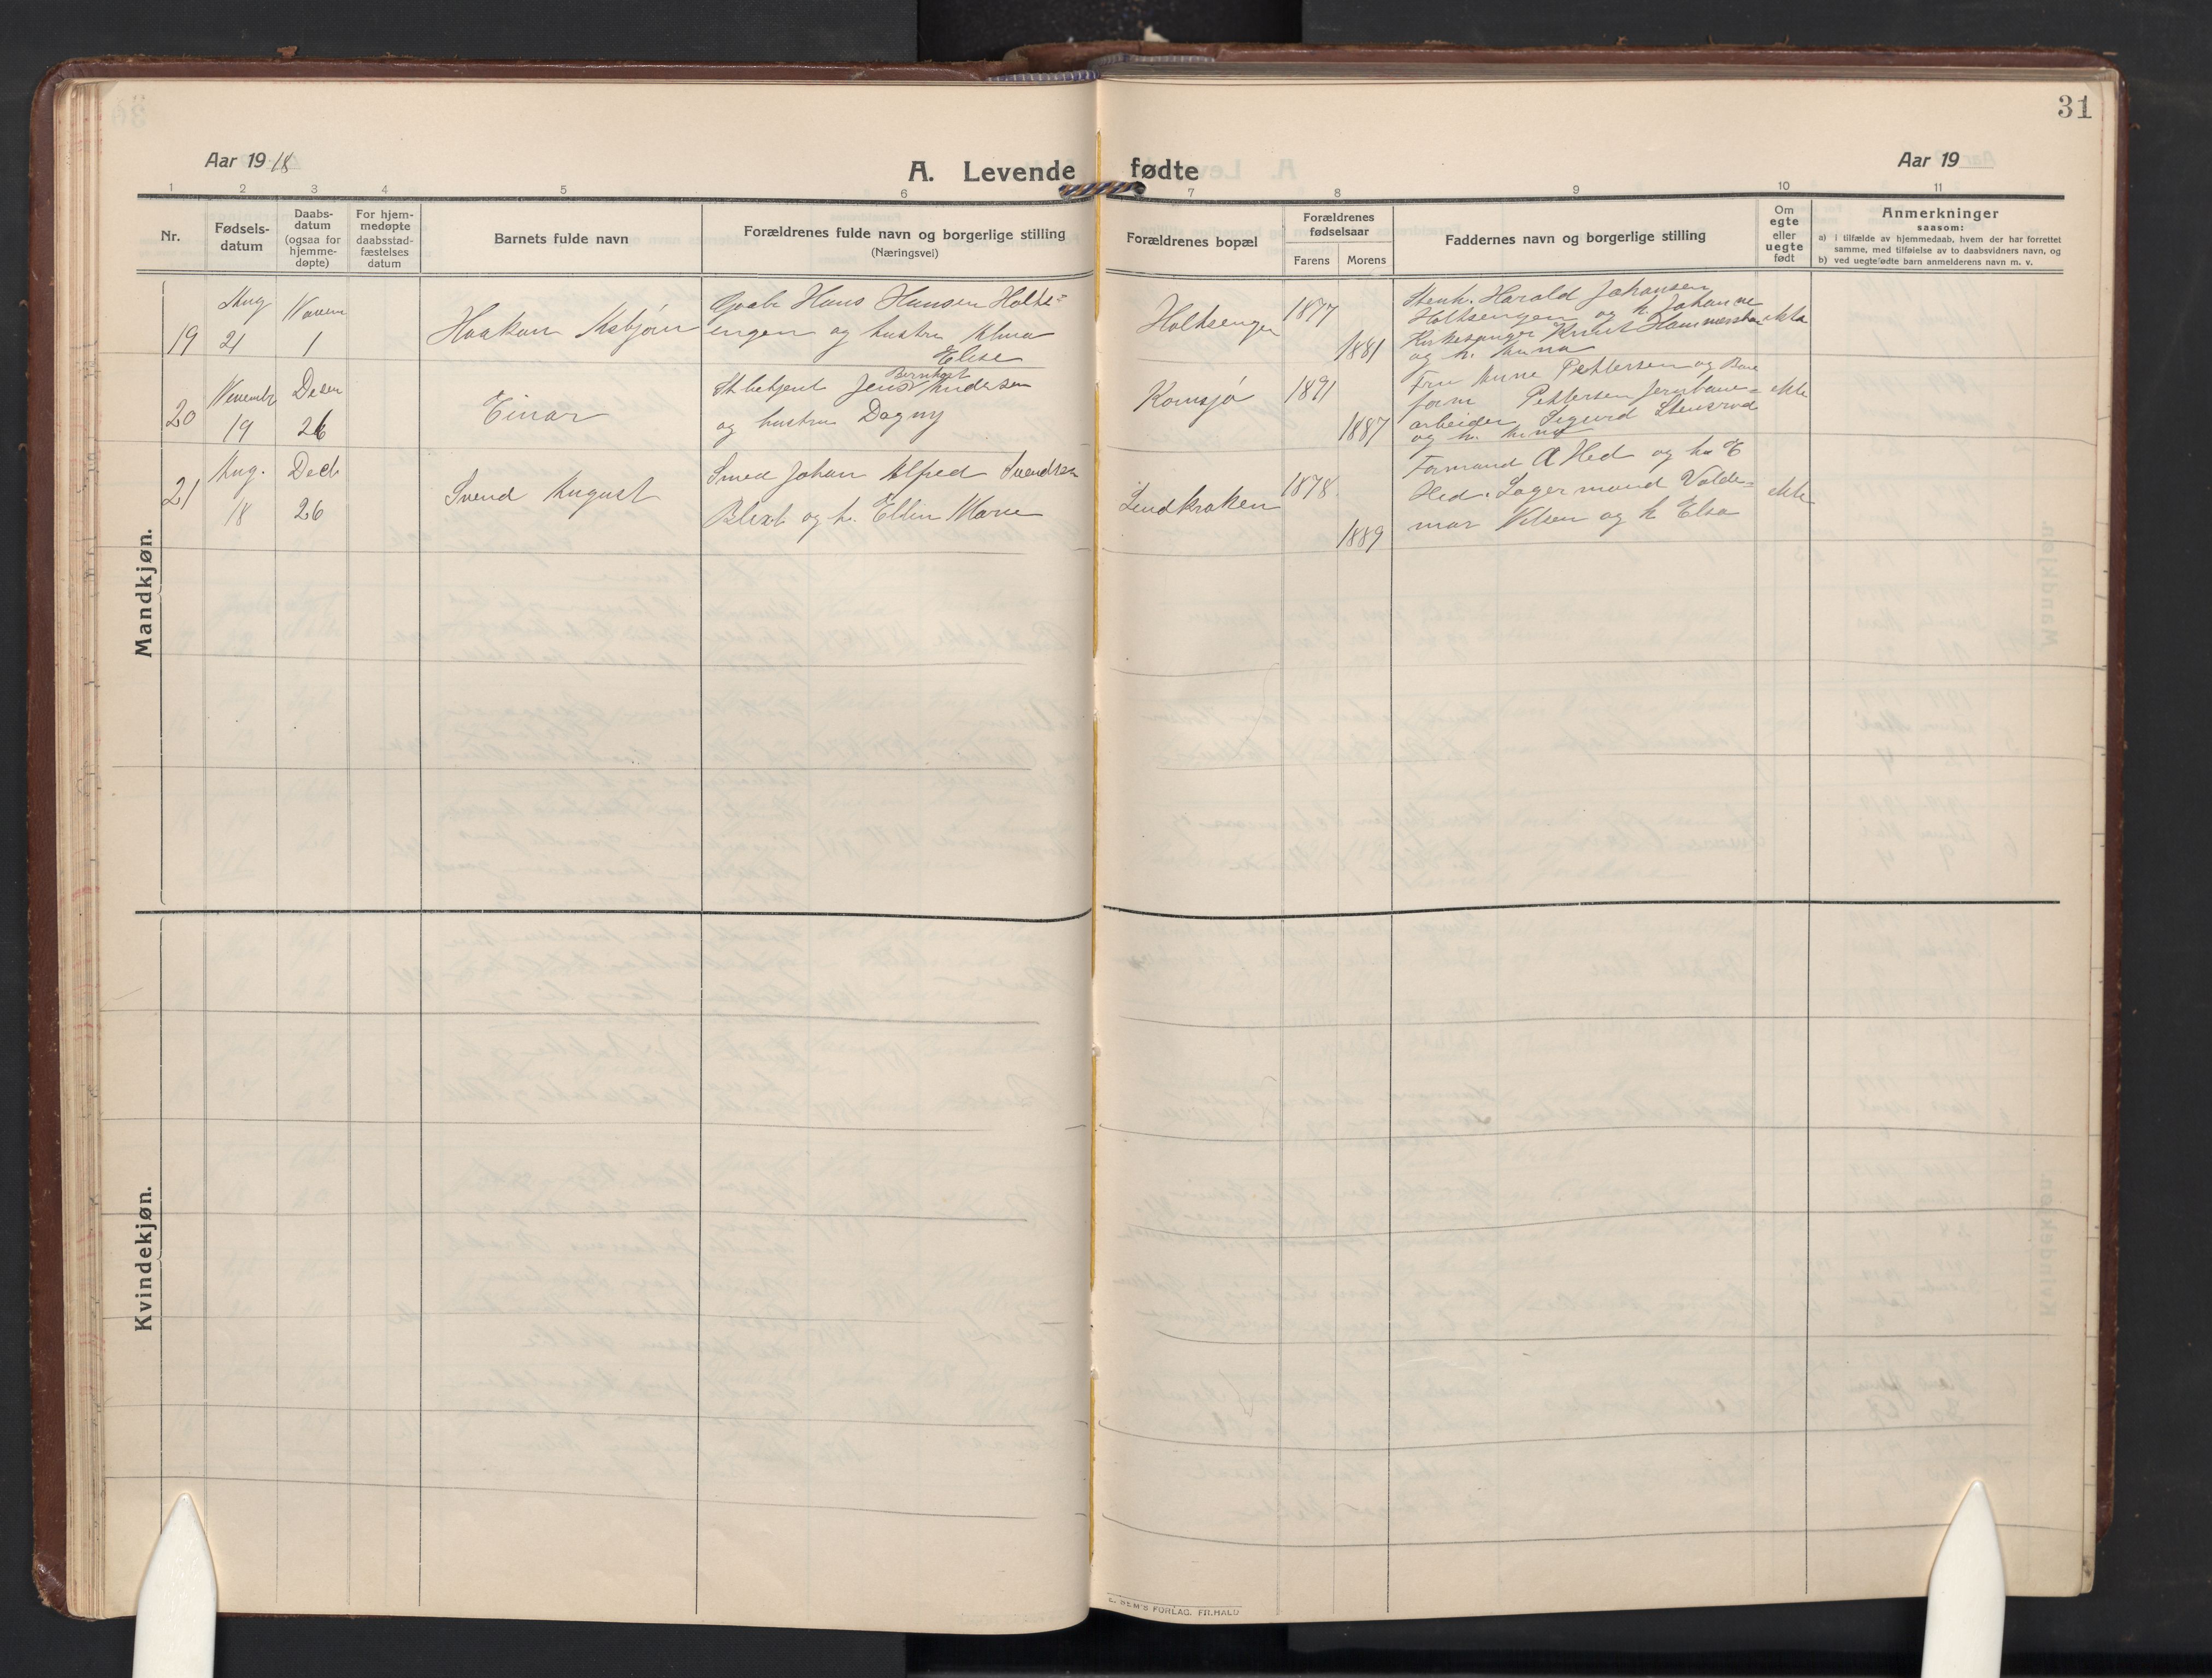 31
Aar 1918
A. Levende fødte
Aar 19
1 2 3 4 5 6 7 8 9 10 11
Nr.
Fødsels-
datum
Daabs-
datum
(ogsaa for
hjemme-
døpte)
For hjem-
medøpte
daabsstad-
fæstelses
datum
Barnets fulde navn
Forældrenes fulde navn og borgerlige stilling
(Næringsvei)
Forældrenes bopæl
Forældrenes
fødselsaar
Farens
Morens
Faddernes navn og borgerlige stilling
Om
egte
eller
uegte
født
Anmerkninger
saasom:
a) i tilfælde av hjemmedaab, hvem der har forrettet
samme, med tilføielse av to daabsvidners navn, og
b) ved uegte fødte barn anmelderens navn m. v.
Mandkjøn.
19
Aug
21
Novem
1
Haakon Asbjørn
Gaabr Hans Hansen Holts=
engen og hustru Alma
Elise
Holtsengen
1877
1881
Stenh. Harald Johansen
Holtsengen og h. Johanne
Kirkesanger Knut
og h. Anna
ekte
20
Novembr
19
Desem
26
Einar
Stbetjent Jens Bernhart Andersen
og hustru Dagny
Kornsjø
1891
1887
Fru Anne Pettersen og Bane
form Pettersen Jernbane=
arbeider Sigurd Stensrød
og h. Anna
ekte
21
Aug.
18
Decb
26
Svend August
Smed Johan Alfred Svendsen
Blixt og h. Ellin Marie
Lundkroken
1878
1889
Formand A Hed og hu E
Hed. Lagermand Valde=
mar Nilsen og h Elsa
ekte
Kvindekjøn.
E. SEM'S FORLAG. FR.HALD